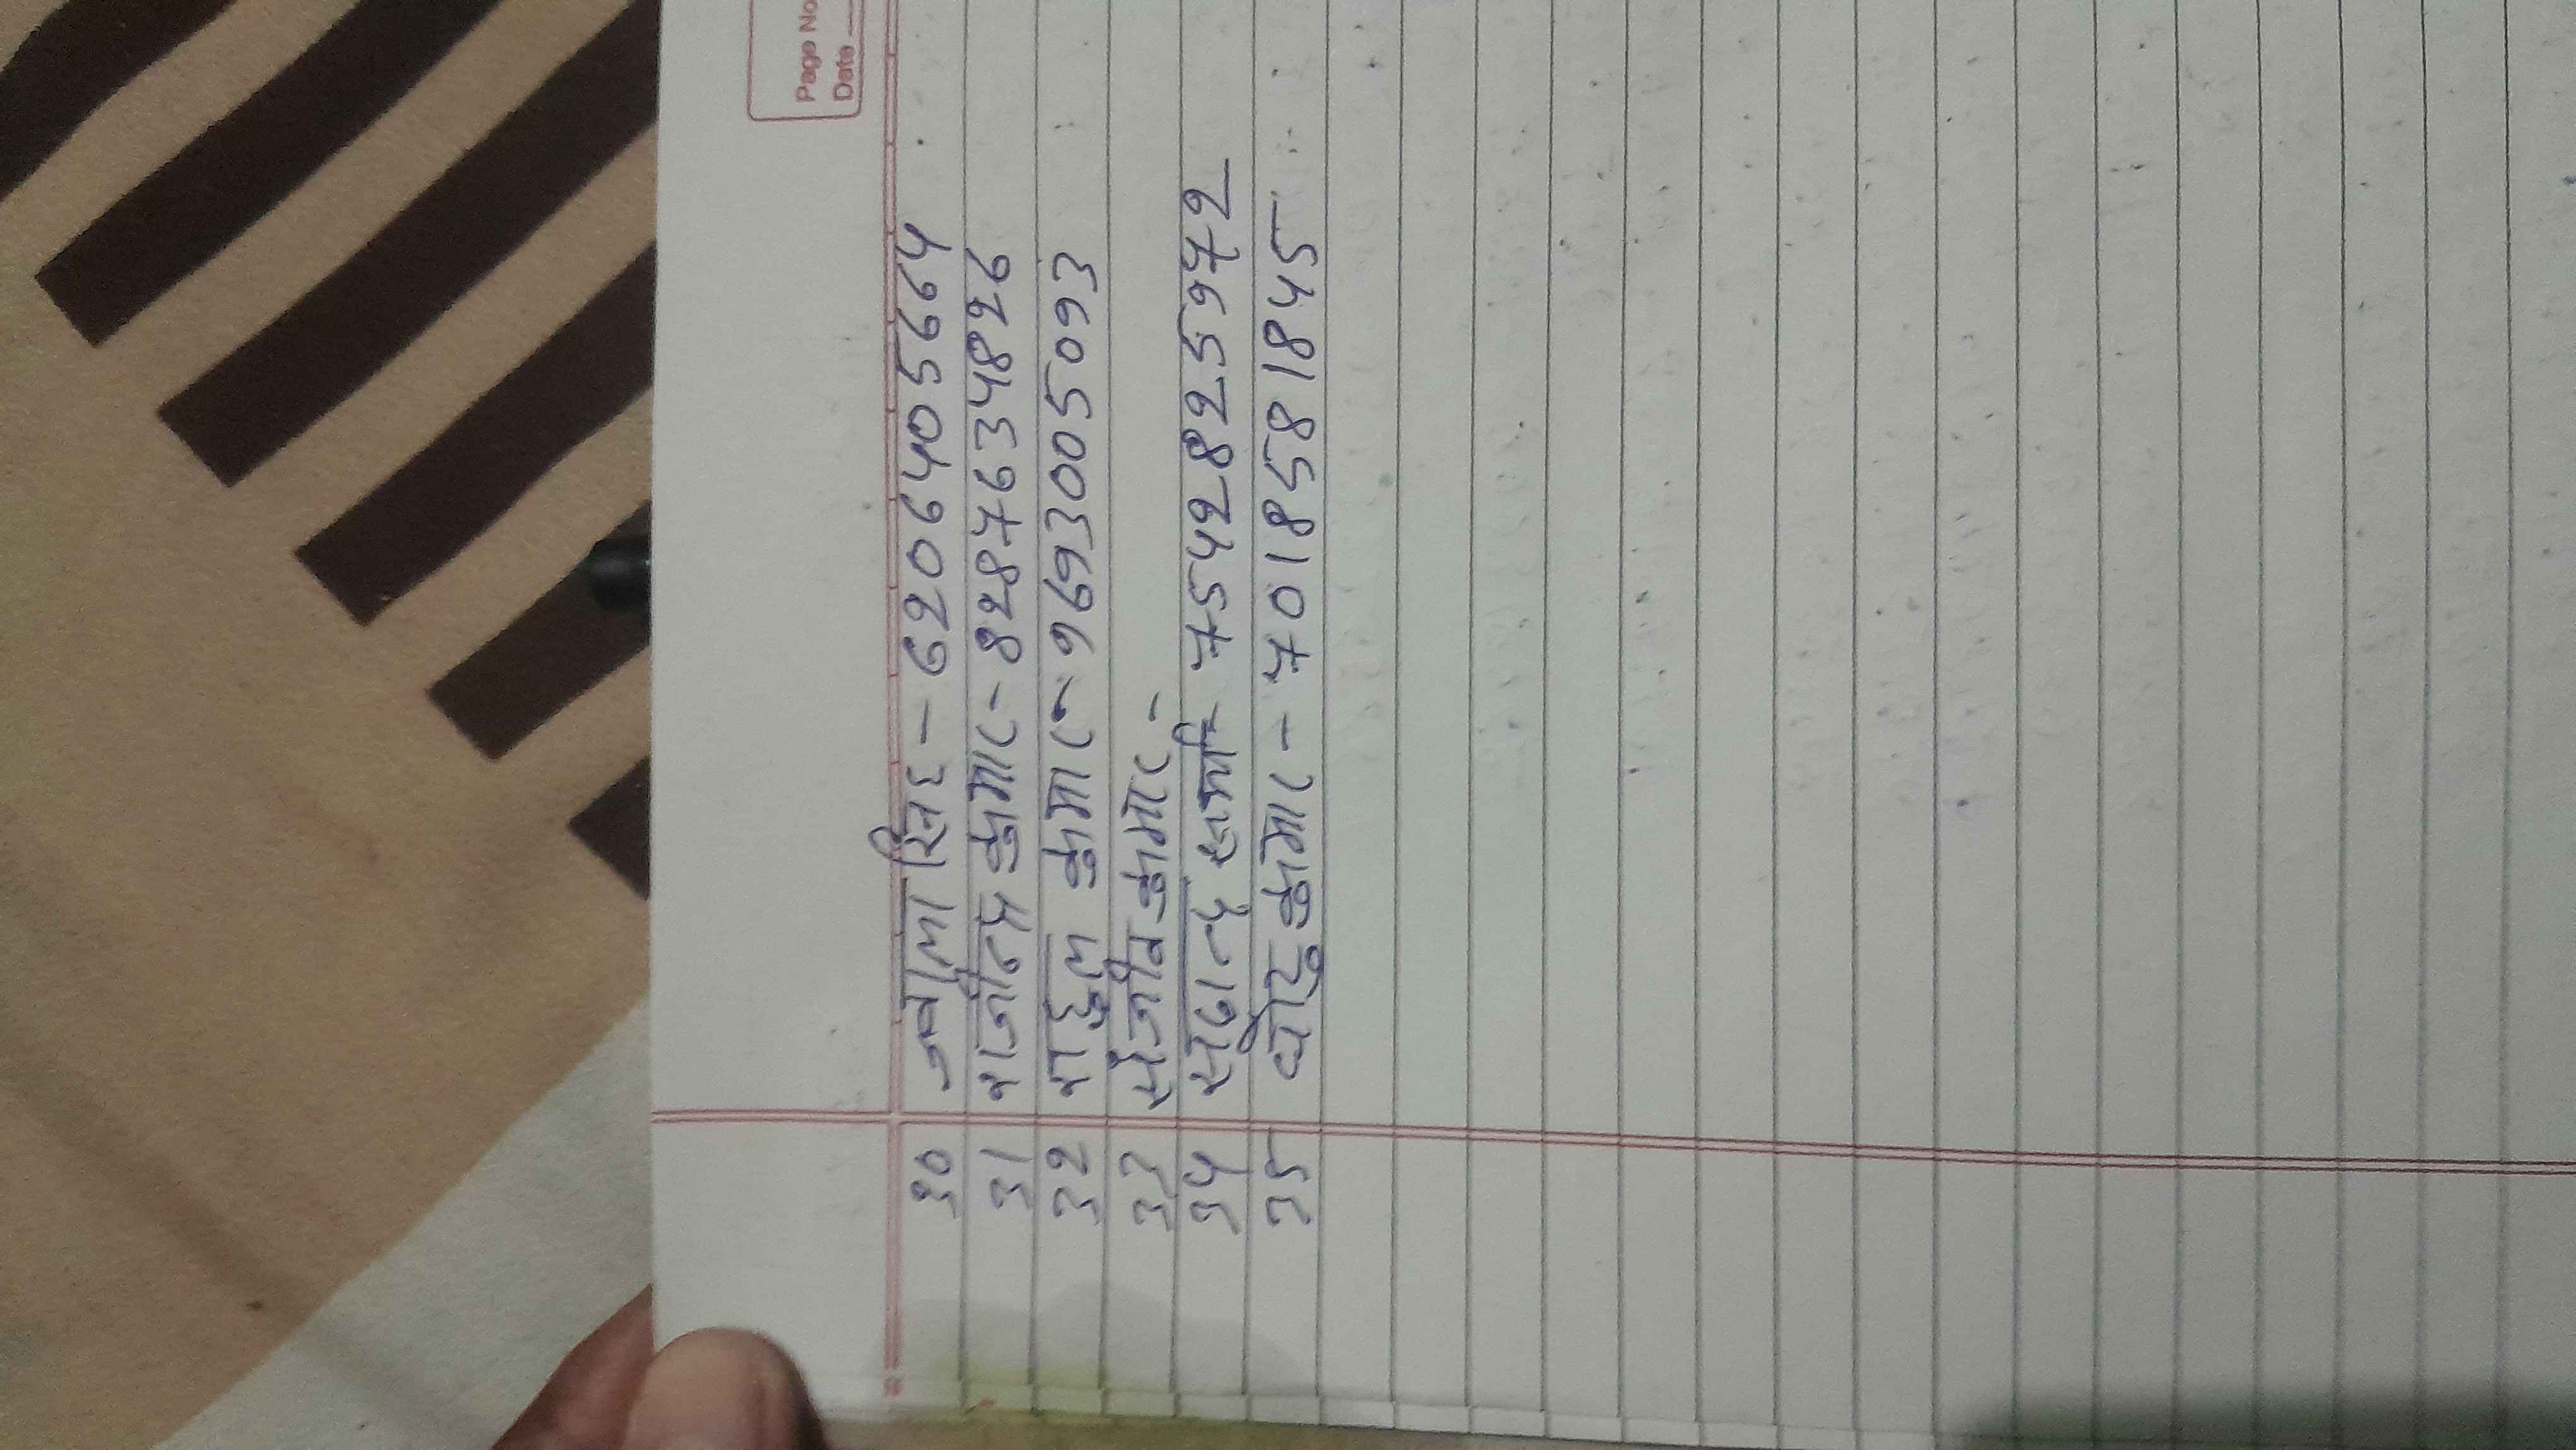 Page No
Date
30 ज्वाला सिंह - 6206405664
31 राजीव कुमार - 8287634826
32 राहुल कुमार - 9693005093
33 संजीव कुमार -
34 7542825972
35 कुमार - 7018581845